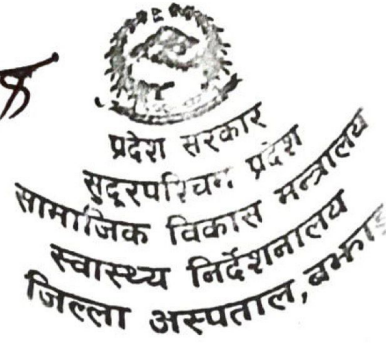 प्रदेश सरकार
सुदूरपश्चिम प्रदेश
सामाजिक विकास मन्त्रालय
स्वास्थ्य निर्देशनालय
जिल्ला अस्पताल,